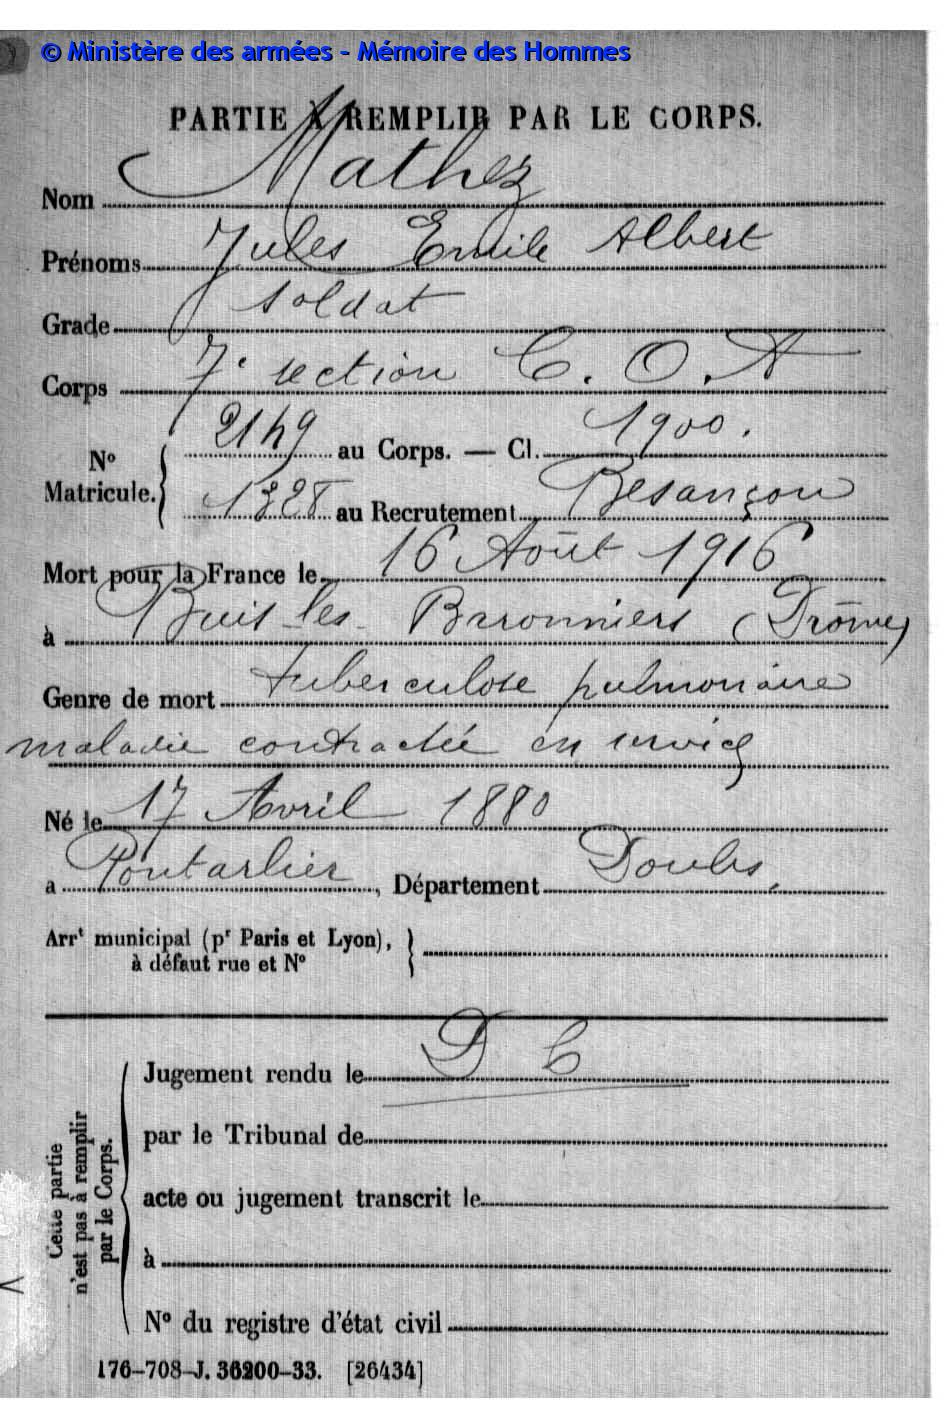 © Ministère des armées - Mémoire des Hommes
PARTIE À REMPLIR PAR LE CORPS.
Nom Mathez
Prénoms Jules Emile Albert
Grade soldat
Corps 7e section C. O. A
2149 au Corps. — Cl. 1900.
N° Matricule. 1328 au Recrutement Besançon
Mort pour la France le 16 Août 1916
à Buis-les-Baronniers (Drôme)
Genre de mort tuberculose pulmonaire
maladie contractée en service
Né le 17 Avril 1880
a Pontarlier, Département Doubs.
Arrt municipal (pr Paris et Lyon),
à défaut rue et N°
D C
Jugement rendu le
par le Tribunal de
acte ou jugement transcrit le
à
N° du registre d'état civil
Cette partie
n'est pas à remplir
par le Corps.
176-708-J. 36200-33. [26434]